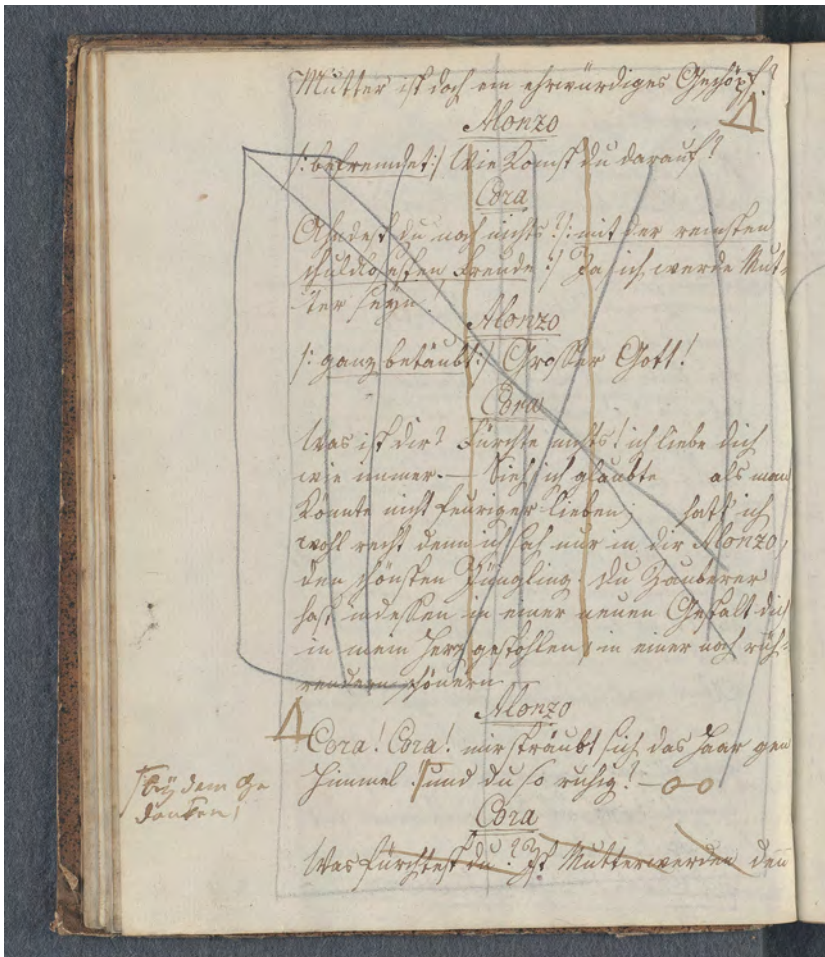 Mutter ist doch ein ehrwürdiges Geschöpf?
Alonzo
/: befremdet :/ Wie komst du darauf?
Cora
Ahndest du noch nichts? /: mit der reinsten
schuldlosesten Freude :/ Ja ich werde Mut-
ter seyn!
Alonzo
/: ganz betäubt :/ Grosser Gott!
Cora
Was ist dir? Fürchte nichts! ich liebe dich
wie immer. — Sieh ich glaubte als man
könnte nicht feuriger lieben; hatt' ich
wohl recht denn ich sah nur in dir Alonzo,
den schönsten Jüngling. Du Zauberer
hast indessen in einer neuen Gestalt dich
in mein Herz gestohlen, in einer noch rüh-
rendern schönern
Alonzo
Cora! Cora! mir sträubt sich das Haar gen
Himmel und du so ruhig! —
bey dem Ge
danken!
Cora
Was fürchtest du? Ist Mutterwerden den